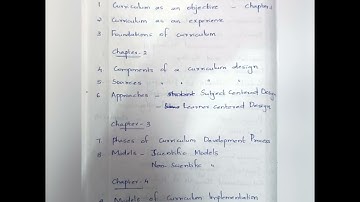 1 Curriculum as an objective - chapter-1
2 Curriculum as an experience
3 Foundations of curriculum
Chapter-2
4 Components of a curriculum design
5 Sources " " "
6 Approaches - Subject Centered Design
- Learner Centered Design
Chapter-3
7 Phases of Curriculum Development Process
8 Models - Scientific Models
Non-Scientific "
Chapter-4
9 Models of Curriculum Implementation